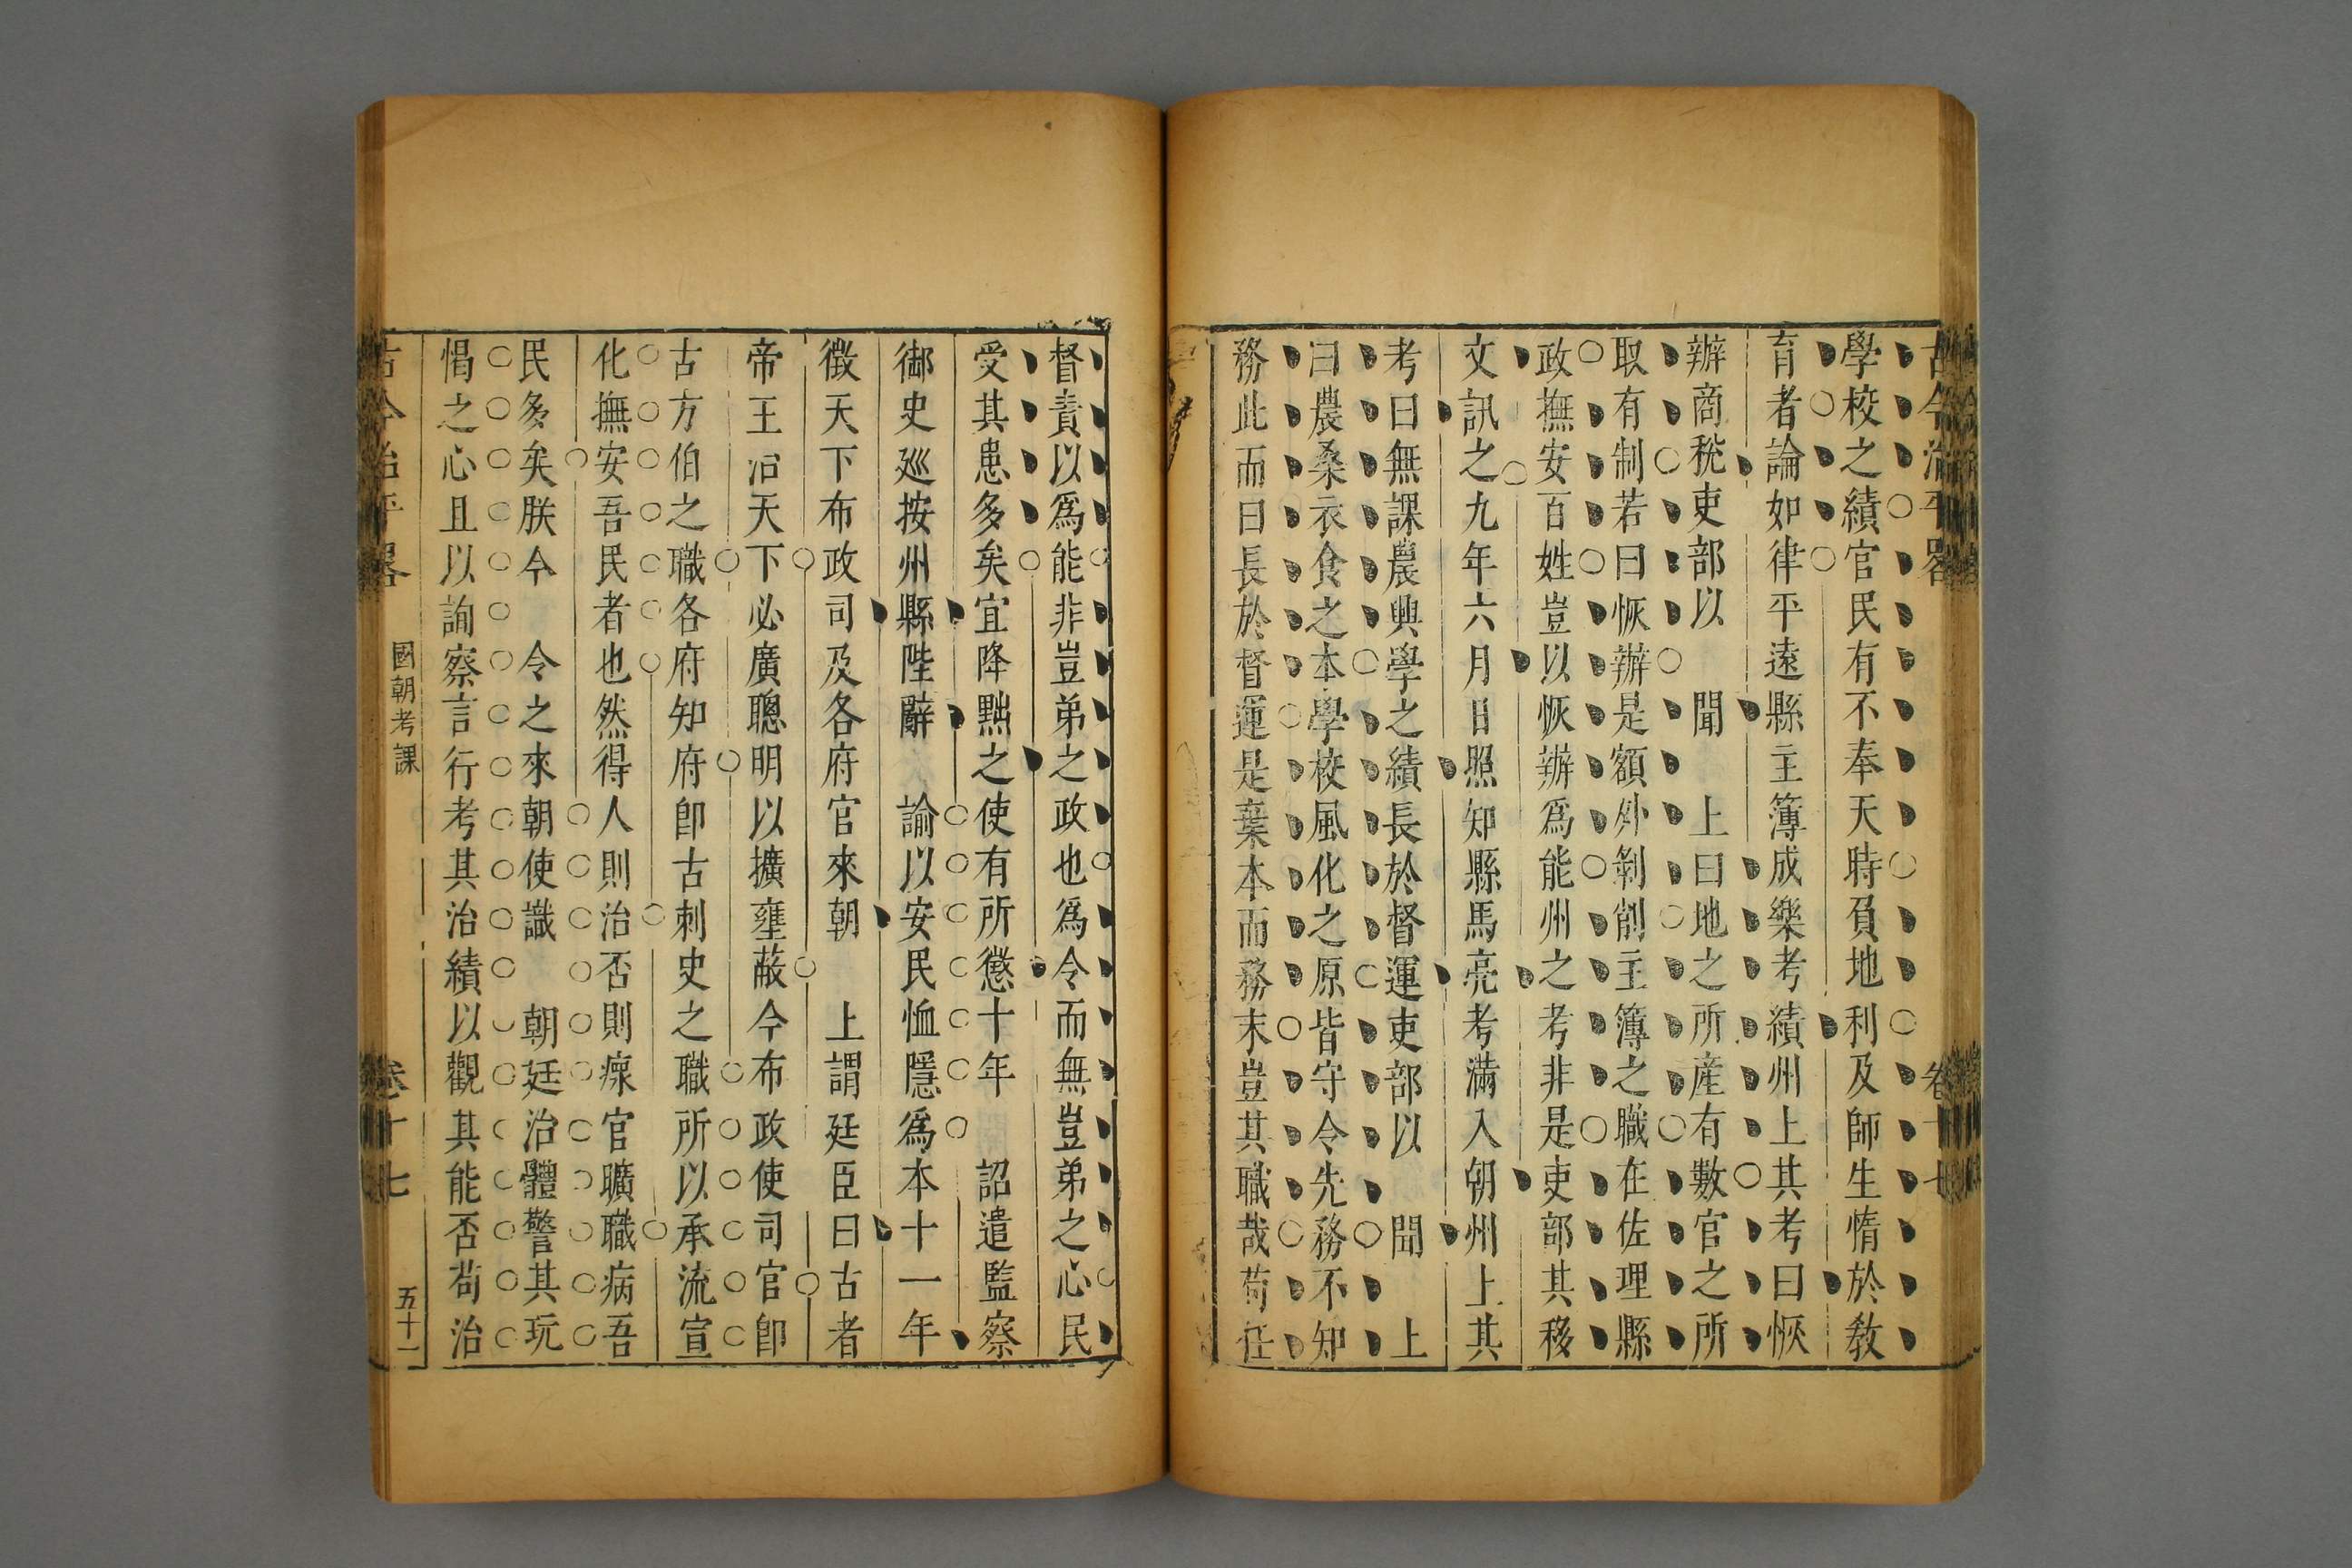 古今治平畧 卷十七
學校之績官民有不奉天時負地利及師生惰於敎
育者論如律平遠縣主簿成樂考績州上其考曰恢
辦商稅吏部以 聞 上曰地之所産有數官之所
取有制若曰恢辦是額外剝削主簿之職在佐理縣
政撫安百姓豈以恢辦爲能州之考非是吏部其移
文訊之九年六月日照知縣馬亮考滿入朝州上其
考曰無課農興學之績長於督運吏部以 聞 上
曰農桑衣食之本學校風化之原皆守令先務不知
務此而曰長於督運是棄本而務末豈其職哉苟任
督責以爲能非豈弟之政也爲令而無豈弟之心民
受其患多矣宜降黜之使有所懲十年 詔遣監察
御史廵按州縣陛辭 諭以安民恤隱爲本十一年
徵天下布政司及各府官來朝 上謂廷臣曰古者
帝王治天下必廣聰明以擴壅蔽今布政使司官卽
古方伯之職各府知府卽古刺史之職所以承流宣
化撫安吾民者也然得人則治否則瘝官曠職病吾
民多矣朕今 令之來朝使識 朝廷治體警其玩
愒之心且以詢察言行考其治績以觀其能否苟治
古今治平畧 國朝考課 卷十七 五十一